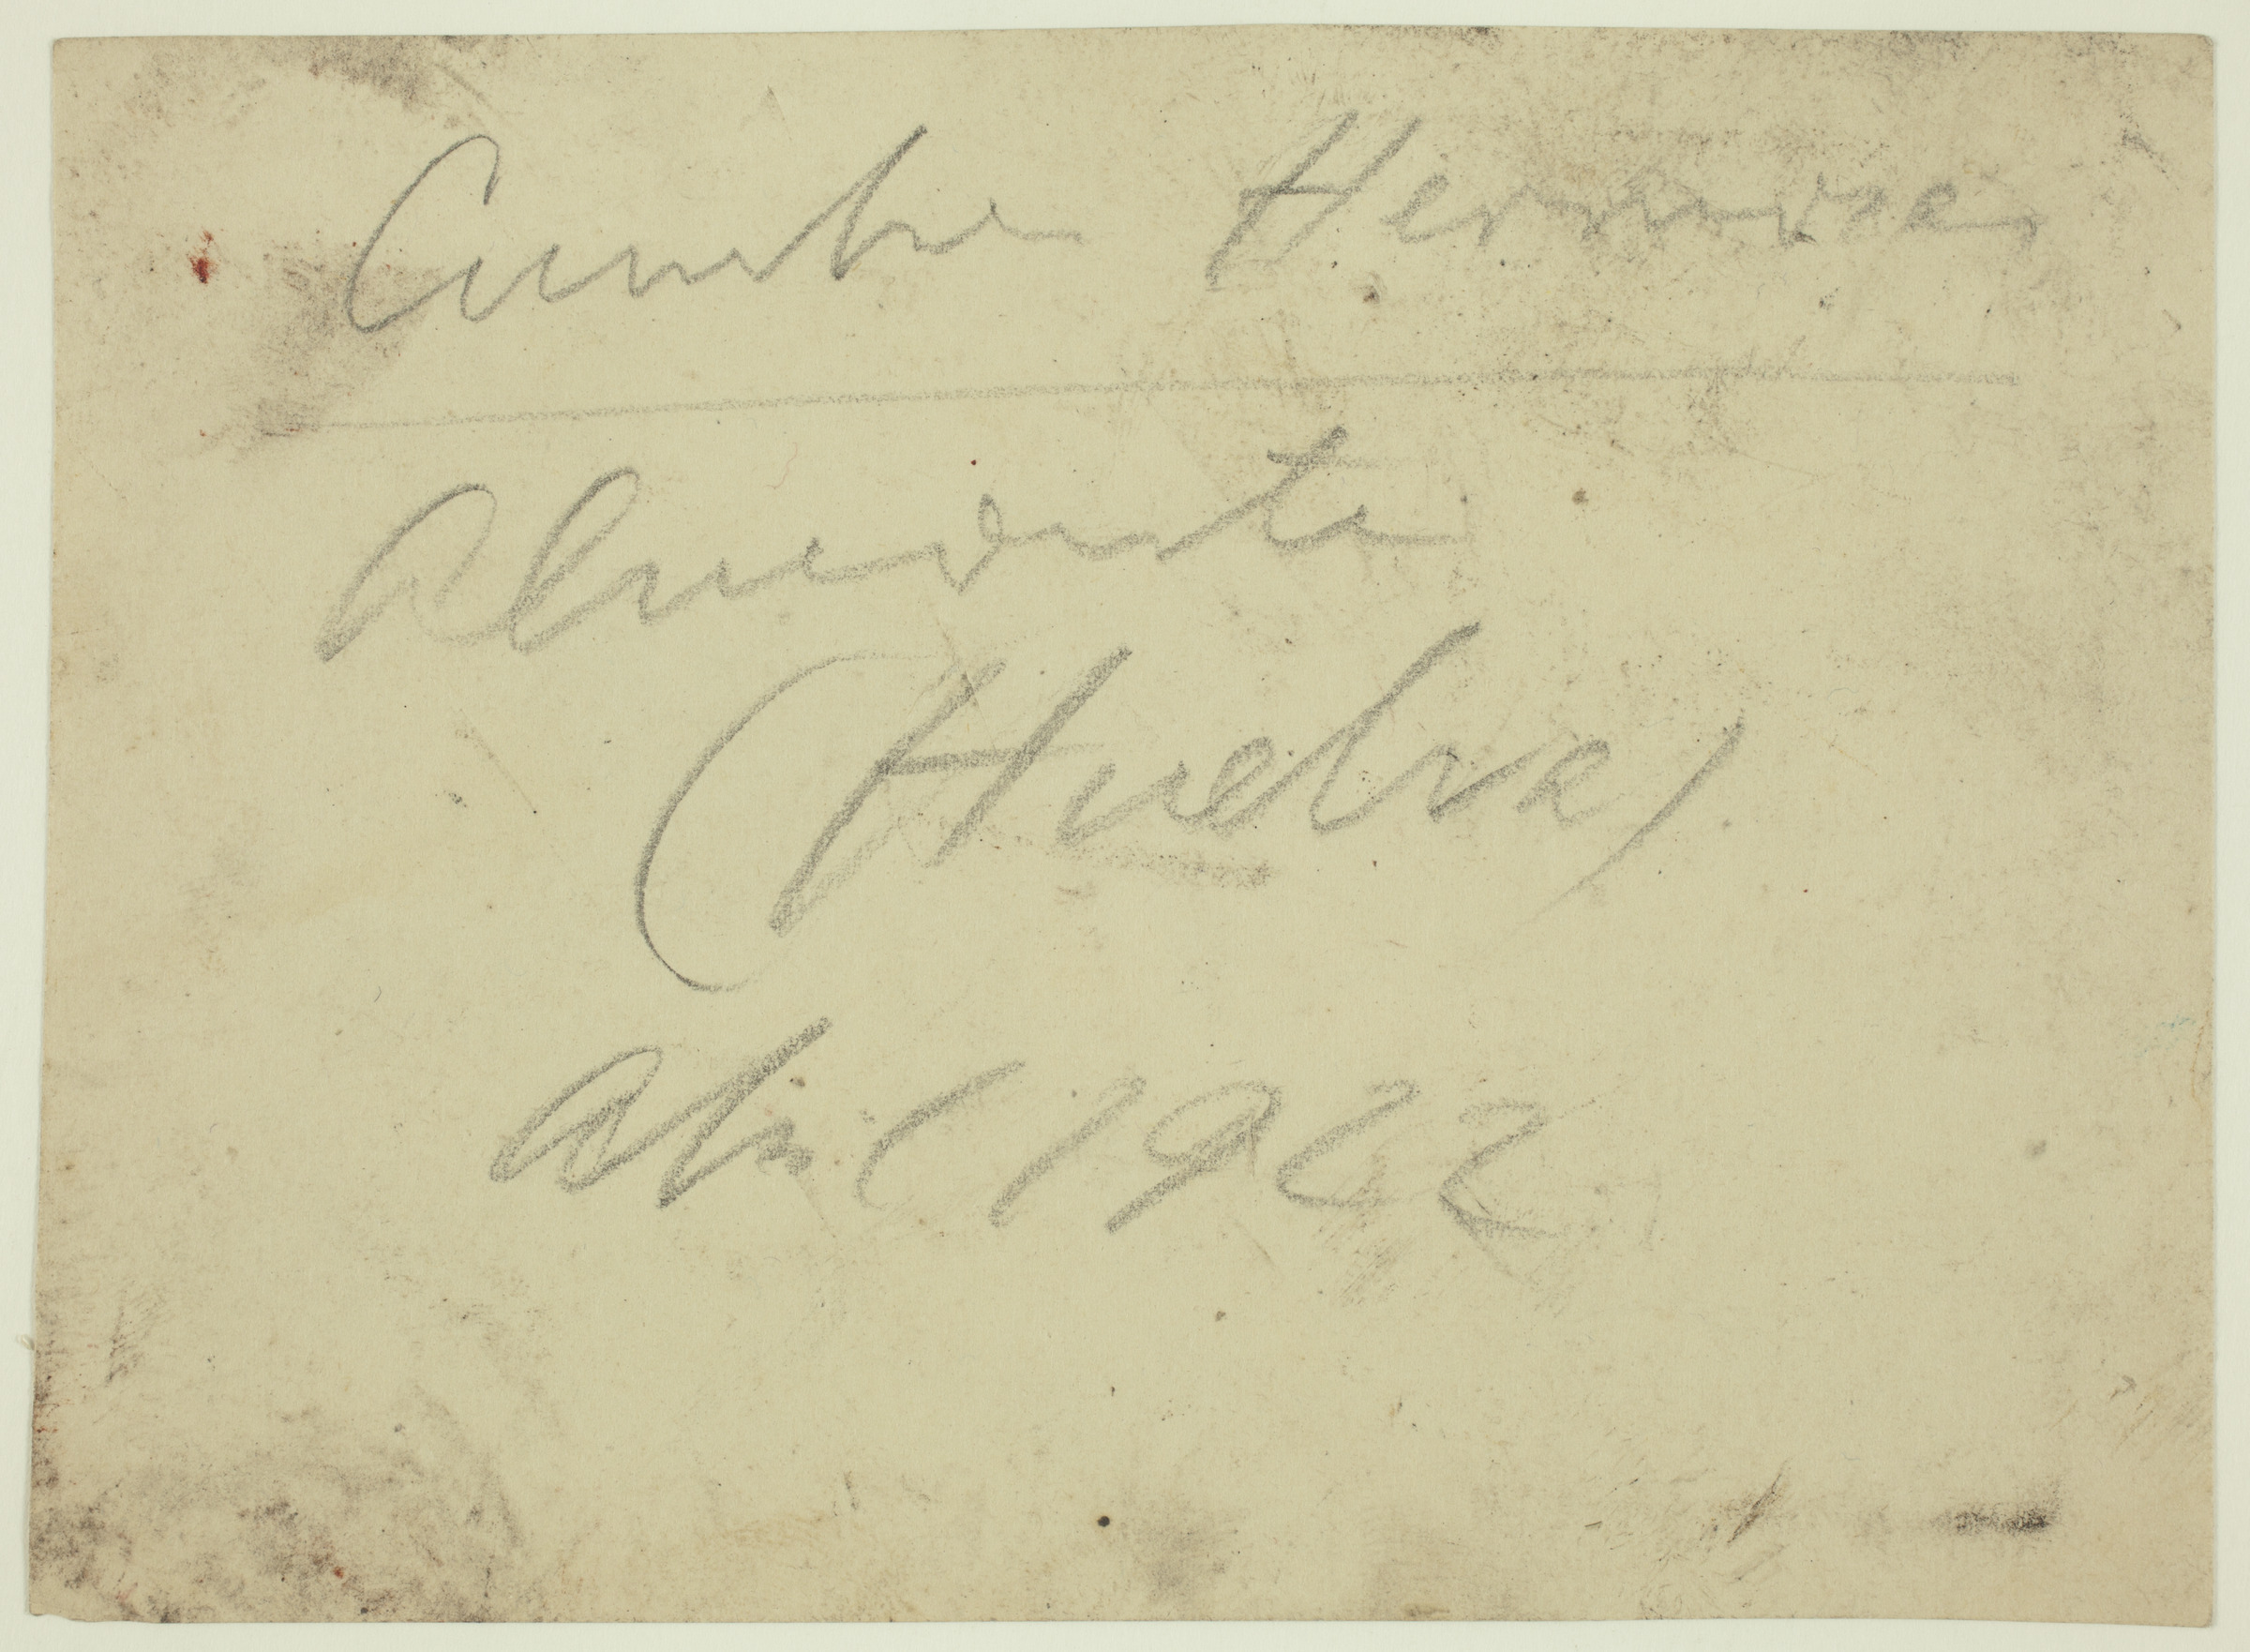 Cumbre Hermosa
Almonte
(Huelva)
Abril 1922